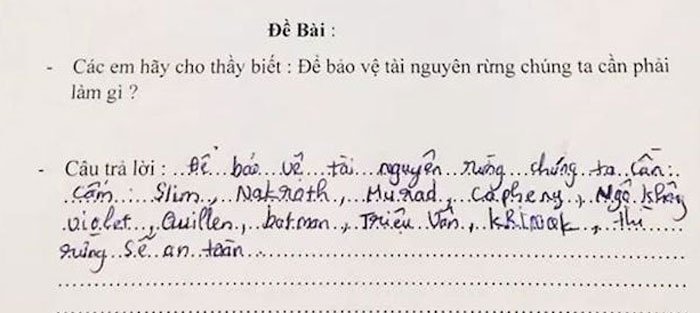 Đề Bài :
- Các em hãy cho thầy biết : Để bảo vệ tài nguyên rừng chúng ta cần phải
làm gì ?
- Câu trả lời : Để bảo vệ tài nguyên rừng chúng ta cần:
Cấm: Slim, Nakroth, Murad, Capheny, Ngộ không
violet, Quillen, batman, Triệu Vân, KRIXIK, thì
rừng sẽ an toàn